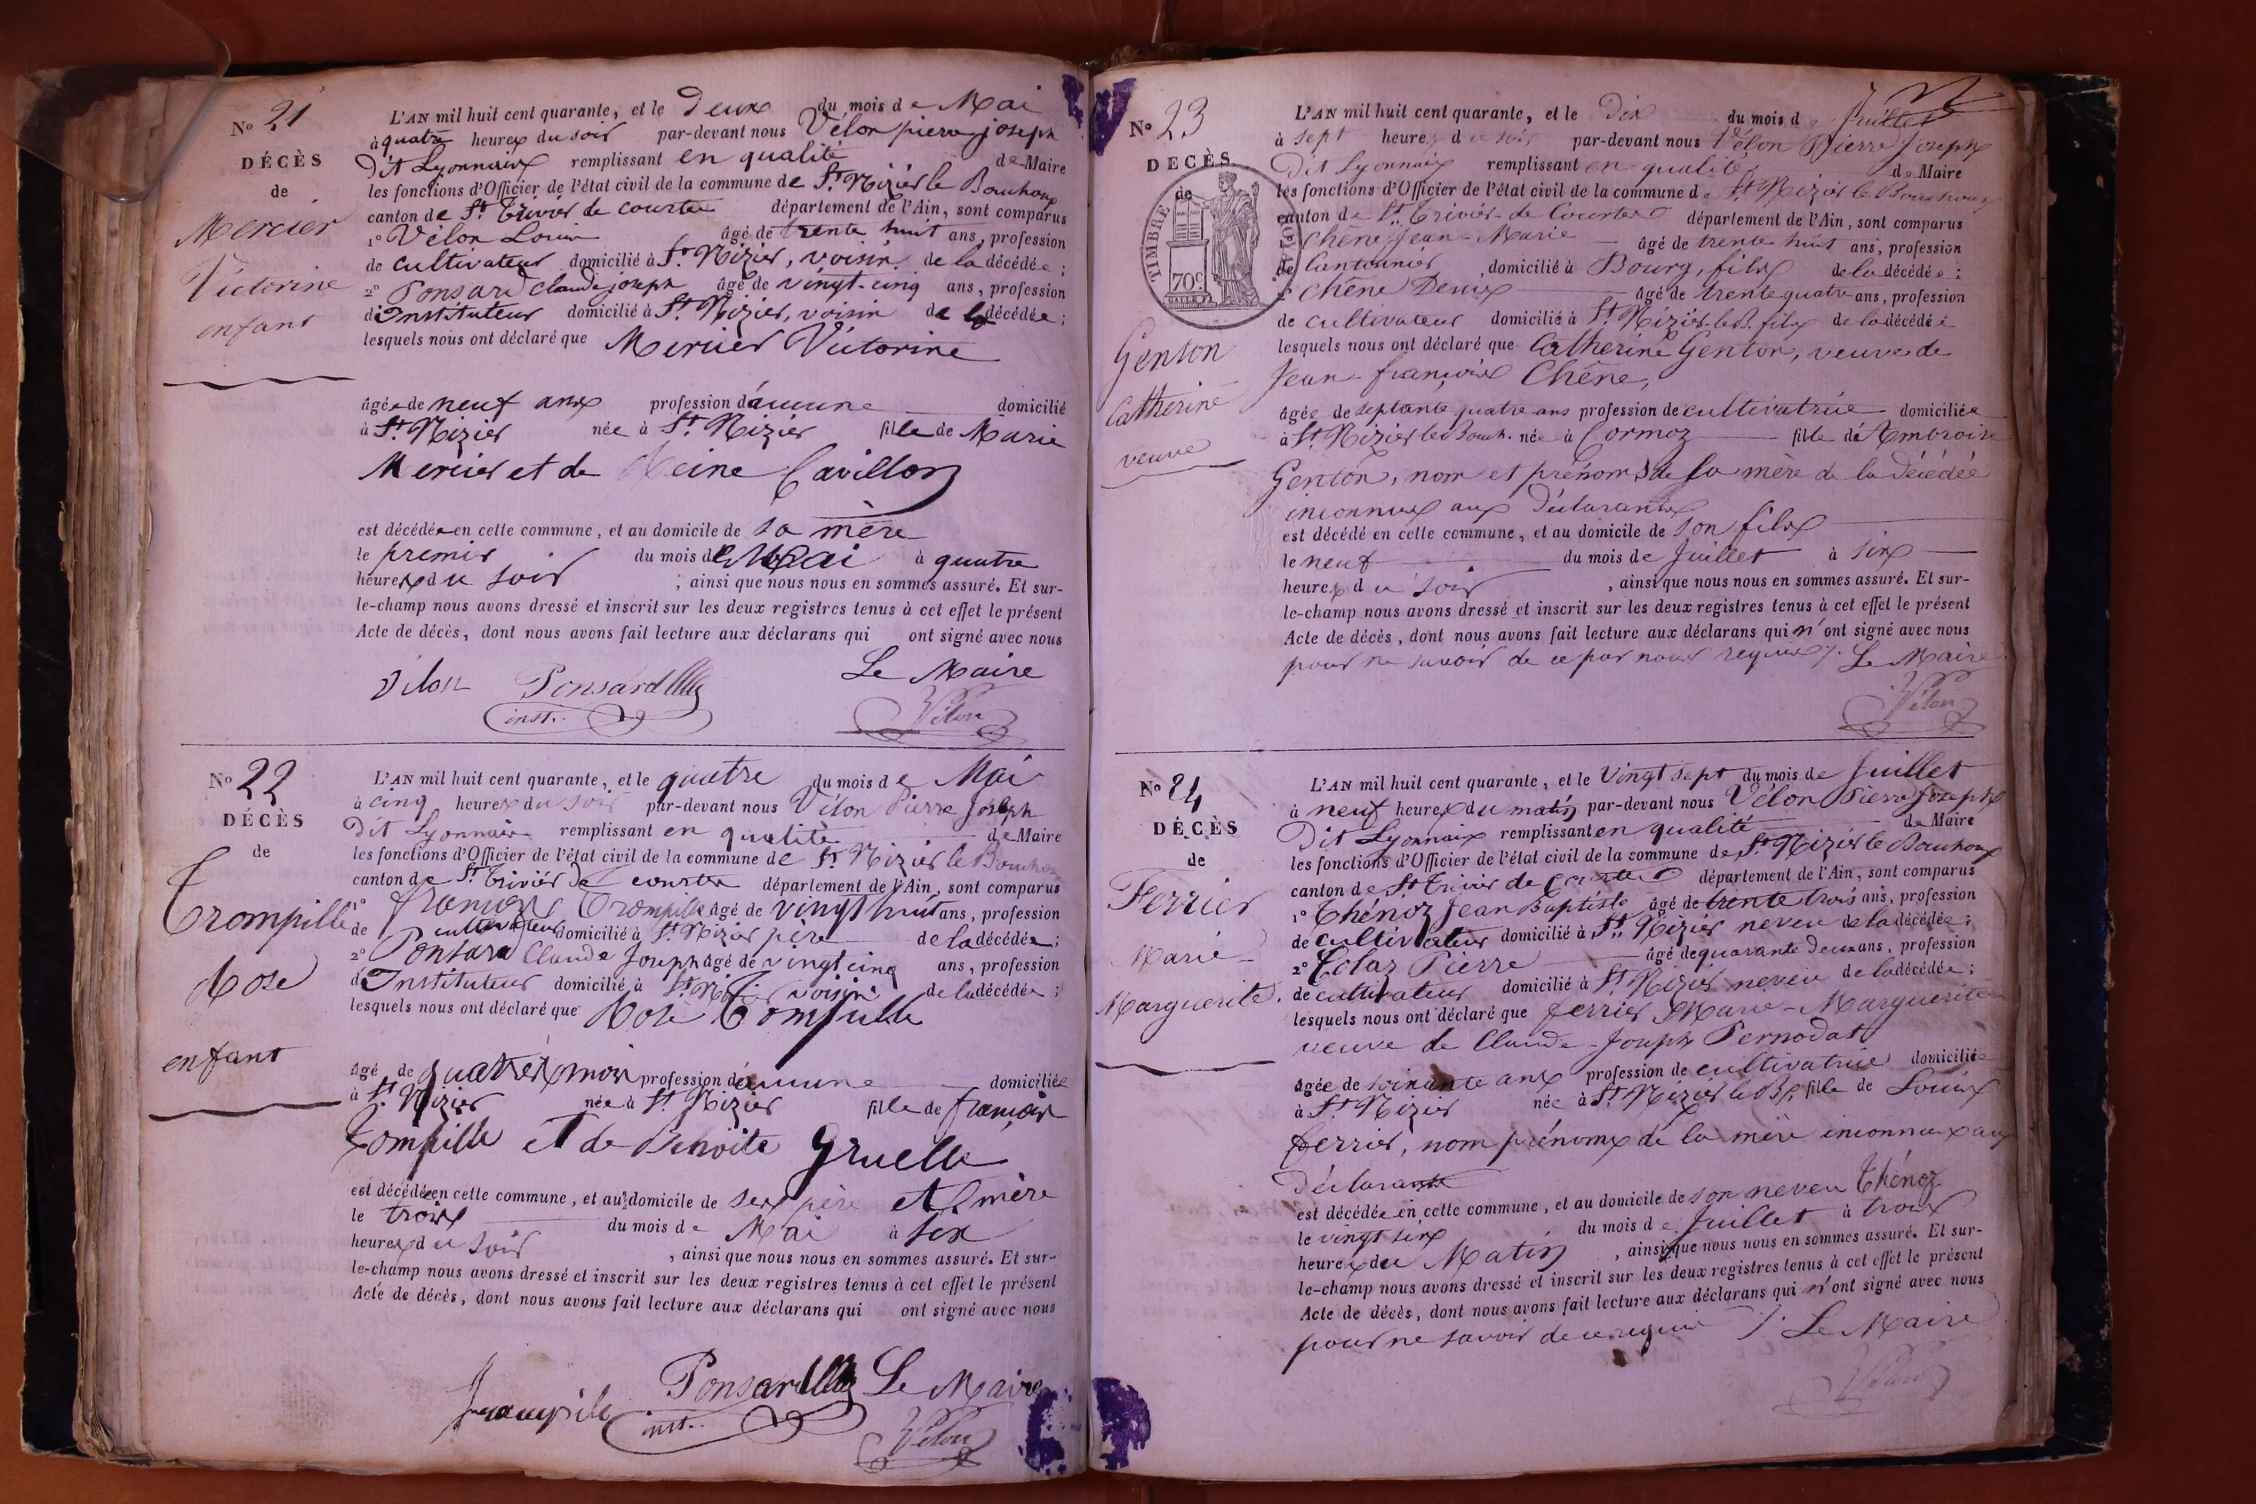 No 21
DÉCÈS
de
Mercier
Victorine
enfant
L'AN mil huit cent quarante, et le Deux du mois de Mai
à quatre heures du soir par-devant nous Vélon pierre joseph
Dit Lyonnais remplissant en qualité de Maire
les fonctions d'Officier de l'état civil de la commune de St Nizier le Bouchoux
canton de St Trivier de courtes département de l'Ain, sont comparus
1o Vélon Louis âgé de trente huit ans, profession
de cultivateur domicilié à St Nizier, voisin de la décédée ;
2o Ponsard Claude joseph âgé de vingt-cinq ans, profession
d'Instituteur domicilié à St Nizier, voisin de la décédée ;
lesquels nous ont déclaré que Mercier Victorine
âgée de neuf ans profession d'aucune domicilié
à St Nizier née à St Nizier fille de Marie
Mercier et de Reine Cavillon
est décédée en cette commune, et au domicile de sa mère
le premier du mois de Mai à quatre
heures du soir ; ainsi que nous nous en sommes assuré. Et sur-
le-champ nous avons dressé et inscrit sur les deux registres tenus à cet effet le présent
Acte de décès, dont nous avons fait lecture aux déclarans qui ont signé avec nous
Vélon Ponsard Le Maire
inst. Vélon
No 22
DÉCÈS
de
Trompille
Rose
enfant
L'AN mil huit cent quarante, et le quatre du mois de Mai
à cinq heures du soir par-devant nous Vélon Pierre Joseph
Dit Lyonnais remplissant en qualité de Maire
les fonctions d'Officier de l'état civil de la commune de St Nizier le Bouchoux
canton de St Trivier de courtes département de l'Ain, sont comparus
1o françois Trompille âgé de vingt huit ans, profession
de cultivateur domicilié à St Nizier père de la décédée ;
2o Ponsard Claude Joseph âgé de vingt cinq ans, profession
d'Instituteur domicilié à St Nizier voisin de la décédée ;
lesquels nous ont déclaré que Rose Trompille
âgé de quatre mois profession d'aucune domiciliée
à St Nizier née à St Nizier fille de françois
Trompille et de Benoite Gruelle
est décédée en cette commune, et au domicile de ses père et mère
le trois du mois de Mai à six
heures du soir, ainsi que nous nous en sommes assuré. Et sur-
le-champ nous avons dressé et inscrit sur les deux registres tenus à cet effet le présent
Acte de décès, dont nous avons fait lecture aux déclarans qui ont signé avec nous
Trompille Ponsard Le Maire
inst. Vélon
No 23
DECÈS
de
TIMBRE ROYAL
70c
Genton
Catherine
veuve
L'AN mil huit cent quarante, et le Dix du mois de Juillet
à sept heures du soir par-devant nous Vélon Pierre Joseph
Dit Lyonnais remplissant en qualité de Maire
les fonctions d'Officier de l'état civil de la commune de St Nizier le Bouchoux
canton de St Trivier de Courtes département de l'Ain, sont comparus
Chêne Jean-Marie âgé de trente huit ans, profession
de Cantonnier, domicilié à Bourg, fils de la décédée ;
2o Chêne Denis âgé de trente quatre ans, profession
de cultivateur domicilié à St Nizier-le-B. fils de la décédée
lesquels nous ont déclaré que Catherine Genton, veuve de
Jean-françois Chêne,
âgée de septante quatre ans profession de cultivatrice domiciliée
à St Nizier le Bouch. née à Cormoz fille de Ambroise
Genton, nom et prénoms de la mère de la décédée
inconnus aux Déclarants
est décédé en cette commune, et au domicile de son fils
le neuf du mois de Juillet à six
heures du soir, ainsi que nous nous en sommes assuré. Et sur-
le-champ nous avons dressé et inscrit sur les deux registres tenus à cet effet le présent
Acte de décès, dont nous avons fait lecture aux déclarans qui n'ont signé avec nous
pour ne savoir de ce par nous requis ./. Le Maire
Vélon
No 24
DÉCÈS
de
Ferrier
Marie-
Marguerite.
L'AN mil huit cent quarante, et le Vingt sept du mois de Juillet
à neuf heures du matin par-devant nous Vélon Pierre Joseph
Dit Lyonnais remplissant en qualité de Maire
les fonctions d'Officier de l'état civil de la commune de St Nizier le Bouchoux
canton de St Trivier de Courtes département de l'Ain, sont comparus
1o Thénoz Jean Baptiste âgé de trente trois ans, profession
de cultivateur domicilié à St Nizier neveu de la décédée ;
2o Colas Pierre âgé de quarante deux ans, profession
de cultivateur domicilié à St Nizier neveu de la décédée ;
lesquels nous ont déclaré que ferrier Marie-Marguerite
veuve de Claude-Joseph Pernodat
âgée de soixante ans profession de cultivatrice domiciliée
à St Nizier née à St Nizier le Bx fille de Louis
ferrier, nom prénoms de la mère inconnus aux
Déclarants
est décédée en cette commune, et au domicile de son neveu Thénoz
le vingt six du mois de Juillet à trois
heures du Matin, ainsi que nous nous en sommes assuré. Et sur-
le-champ nous avons dressé et inscrit sur les deux registres tenus à cet effet le présent
Acte de décès, dont nous avons fait lecture aux déclarans qui n'ont signé avec nous
pour ne savoir de ce requis ./. Le Maire
Vélon